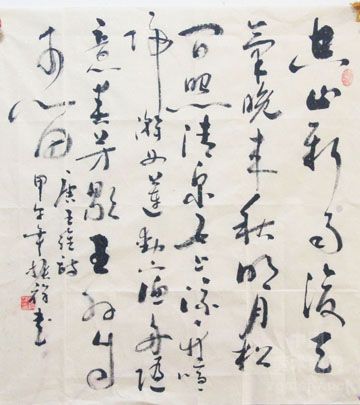 空山新雨後天
氣晚来秋明月松
間照清泉石上流竹喧
歸浣女蓮動下漁舟隨
意春芳歇王孫自
可留
唐王维詩
甲午年書